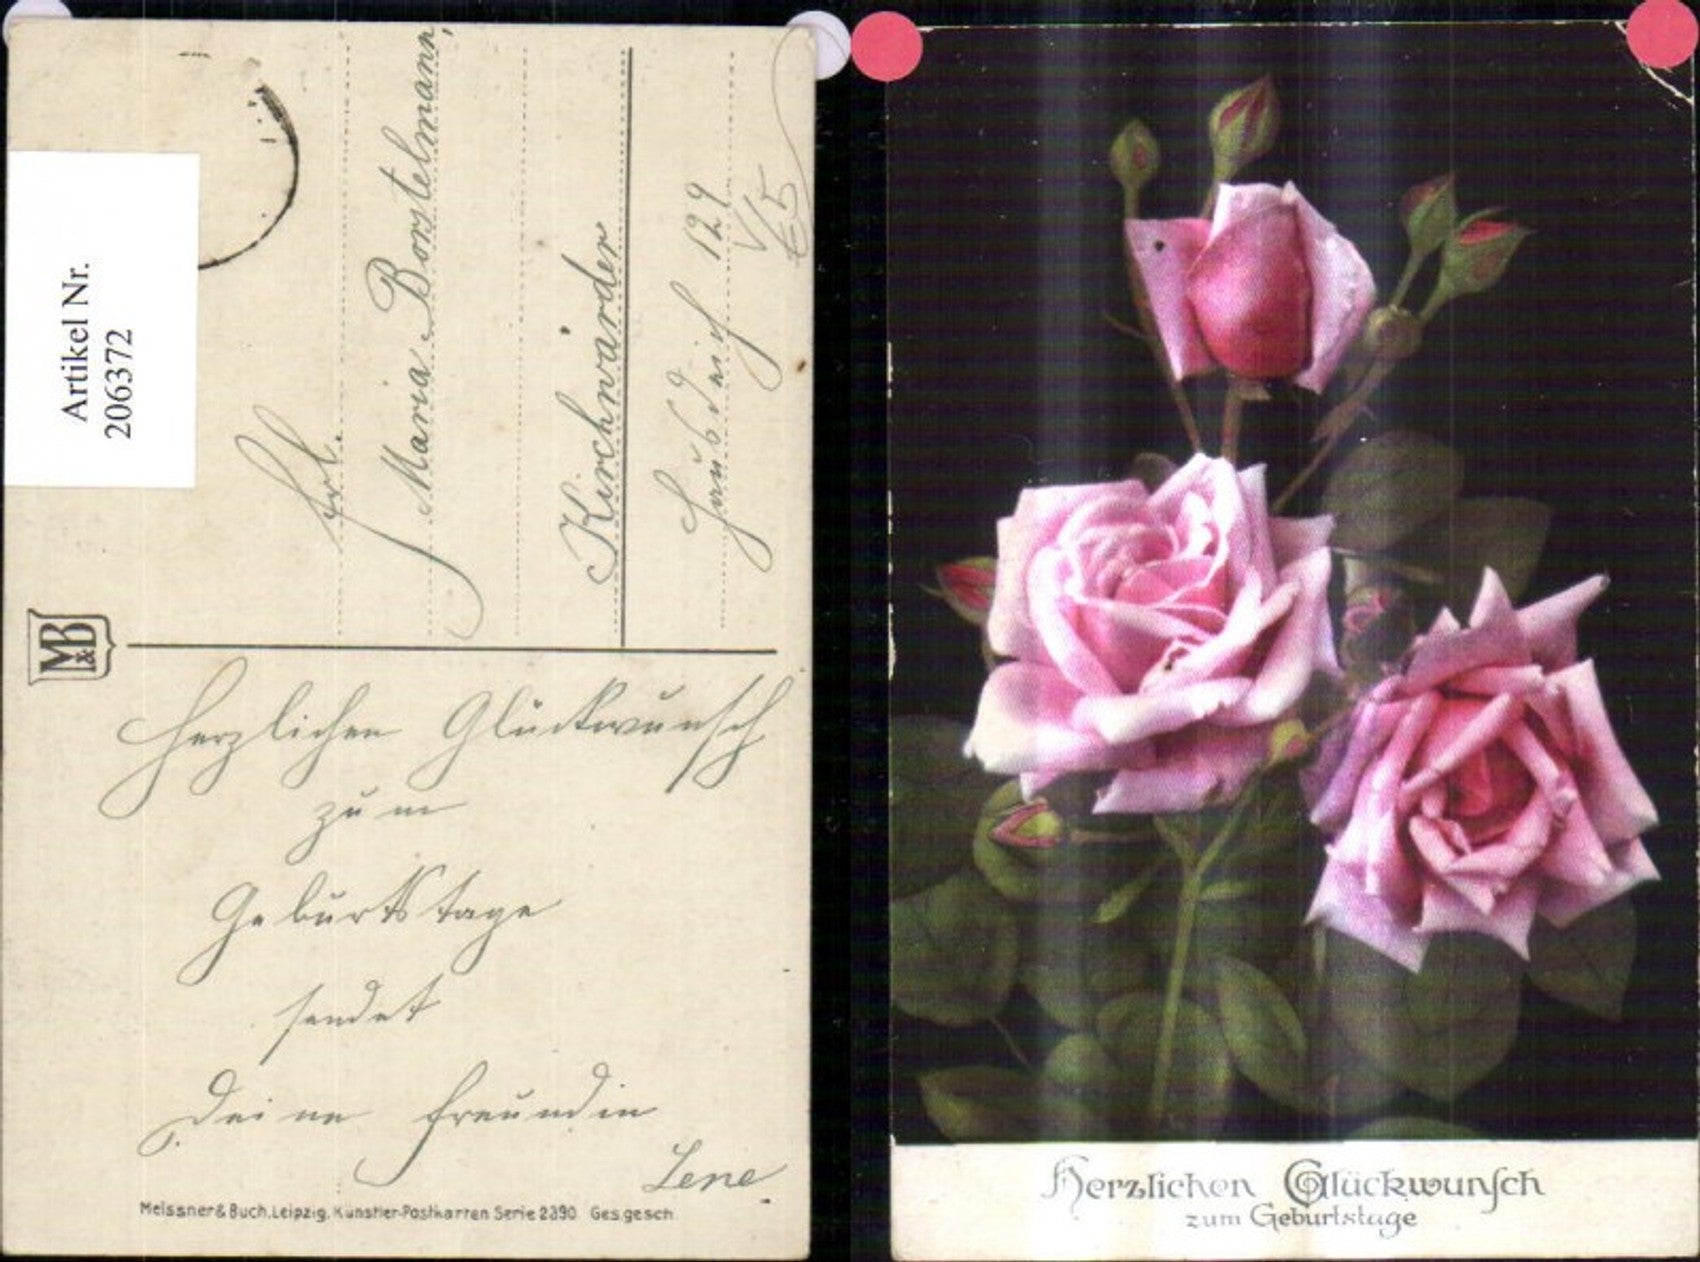 Artikel Nr.
206372
Frl.
Maria Borstelmann,
Kirchwärder
129
M&B
Herzlichen Glückwunsch
zum
Geburtstage
sendet
Deine Freundin
Lene.
Meissner & Buch, Leipzig. Künstler-Postkarten Serie 2390 Ges. gesch.
Herzlichen Glückwunsch
zum Geburtstage